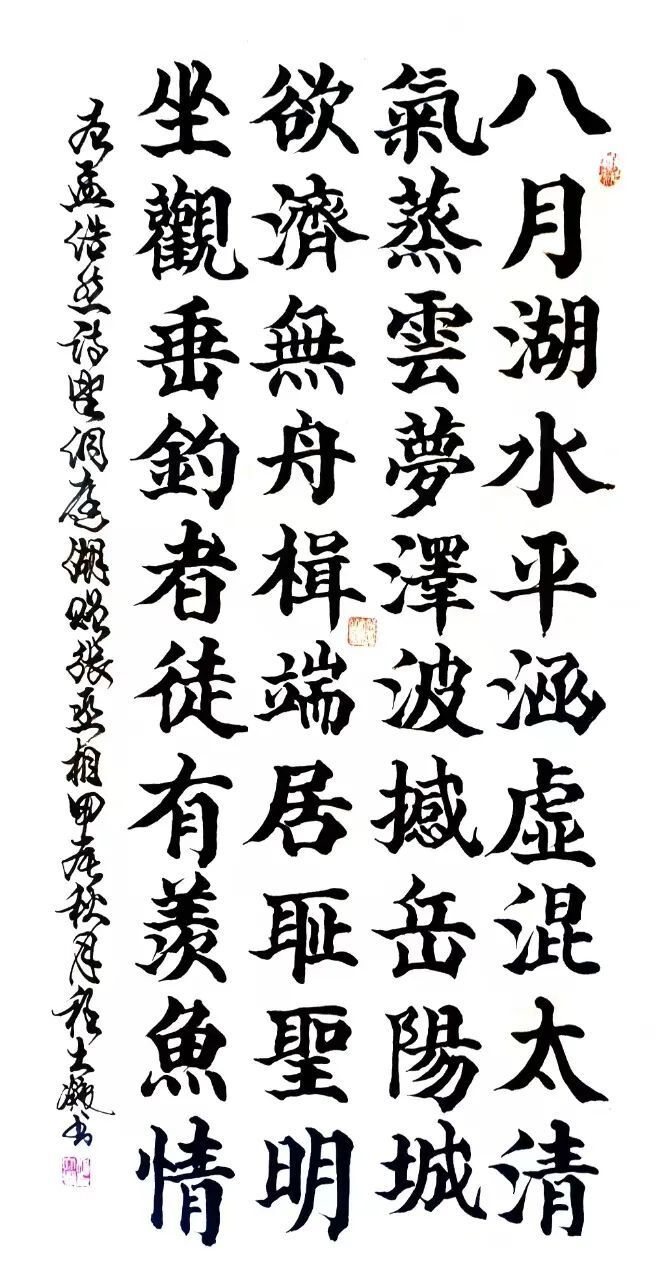 八月湖水平涵虚混太清
氣蒸雲夢澤波撼岳陽城
欲濟無舟楫端居耻聖明
坐觀垂釣者徒有羨魚情
右孟浩然詩望洞庭湖贈張丞相甲辰秋月程士書